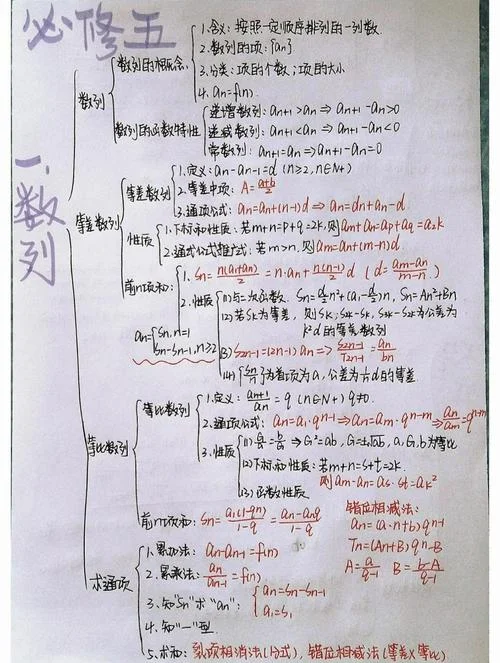 必修五
一.数列
数列
数列的概念
1.含义:按照一定顺序排列的一列数.
2.数列的项:{an}
3.分类:项的个数;项的大小
4.an=f(n).
数列的函数特性
递增数列:an+1>an⇒an+1-an>0
递减数列:an+1<an⇒an+1-an<0
常数列:an+1=an⇒an+1-an=0
等差数列
等差数列
1.定义:an-an-1=d(n≥2,n∈N+)
2.等差中项:A=a+b/2
3.通项公式:an=a1+(n-1)d⇒an=dn+a1-d
性质
1.下标和性质:若m+n=p+q=2k,则am+an=ap+aq=a2k
2.通式公式推广式:若m>n,则am=an+(m-n)d
前n项和
1.Sn=n(a1+an)/2=n·a1+n(n-1)/2 d (d=am-an/m-n)
2.性质
(1)与二次函数.Sn=d/2 n²+(a1-d/2)n,Sn=An²+Bn
(2)若Sk为等差,则Sk,S2k-Sk,S3k-S2k为公差为
k²d的等差数列
(3)S2n-1=(2n-1)an⇒S2n-1/T2n-1=an/bn
(4){Sn/n}为首项为a1公差为1/2d的等差.
an={S1,n=1
Sn-Sn-1,n≥2
等比数列
等比数列
1.定义:an+1/an=q(n∈N+)q≠0.
2.通项公式:an=a1·qn-1⇒an=am·qn-m⇒an/am=qn-m
3.性质
(1)G/a=b/G⇒G²=ab,G=±√ab,a,G,b为等比
(2)下标和性质:若m+n=s+t=2k.
则am·an=as·at=ak²
(3)函数性质
前n项和:Sn=a1(1-qn)/1-q=a1-anq/1-q
错位相减法:
an=(a·n+b)qn-1
Tn=(An+B)qn-B
A=a/q-1 B=b-A/q-1
求通项
1.累加法:an-an-1=f(n)
2.累乘法:an/an-1=f(n)
3.知"Sn"求"an":{an=Sn-Sn-1
a1=S1
4.知"一"型
5.求和:裂项相消法(分式),错位相减法(等差×等比)